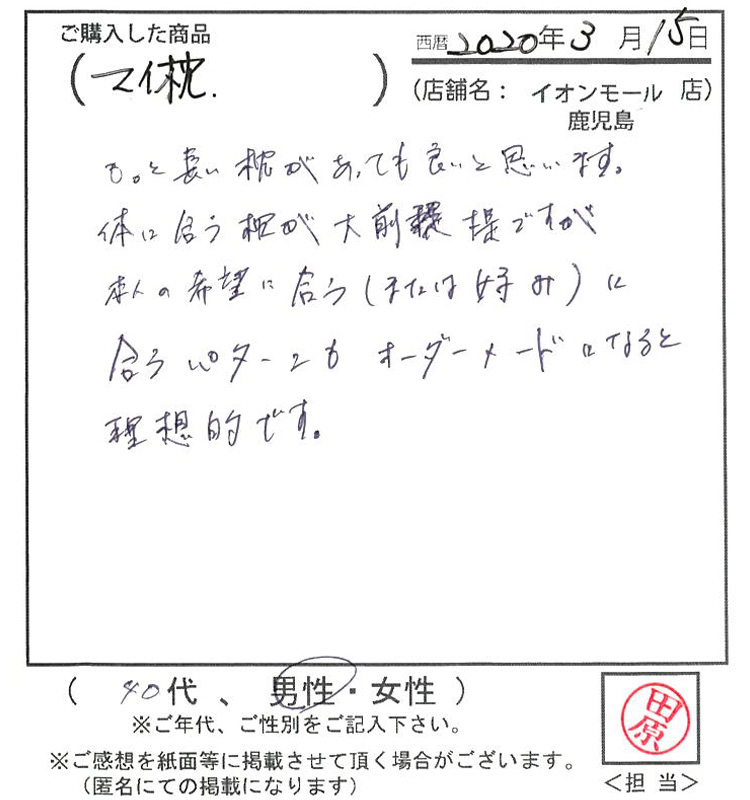 ご購入した商品
(マイ枕.)
西暦2020年3月15日
(店舗名: イオンモール 店)
鹿児島
もっと長い枕があっても良いと思います。
体に合う枕が大前提ですが
本人の希望に合う(または好み)に
合うパターンもオーダーメードになると
理想的です。
( 40代 、 男性・女性 )
※ご年代、ご性別をご記入下さい。
※ご感想を紙面等に掲載させて頂く場合がございます。
(匿名にての掲載になります)
田原
<担 当>